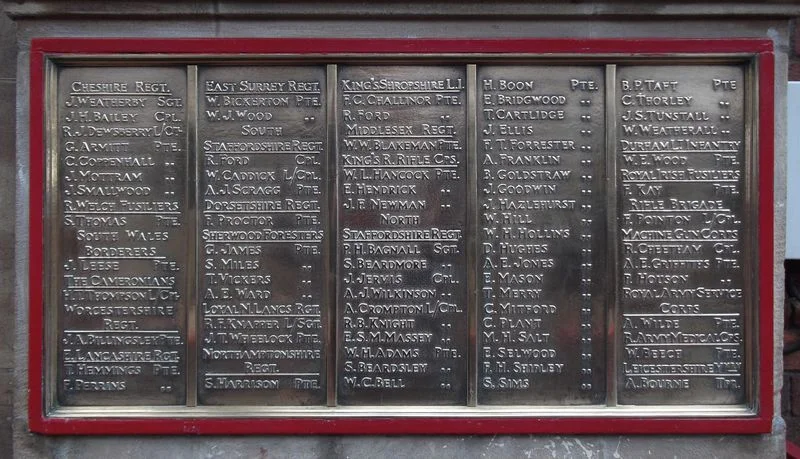 CHESHIRE REGT.
J. WEATHERBY SGT.
J. H. BAILEY CPL.
R. J. DEWSBERRY L/CPL.
G. ARMITT PTE.
C. COPPENHALL "
J. MOTTRAM "
J. SMALLWOOD "
R. WELCH FUSILIERS
S. THOMAS PTE.
SOUTH WALES
BORDERERS
J. LEESE PTE.
THE CAMERONIANS
H. T. THOMPSON L/CPL
WORCESTERSHIRE
REGT.
J. A. BILLINGSLEY PTE.
E. LANCASHIRE RGT.
T. HEMMINGS PTE.
F. PERRINS "
EAST SURREY REGT.
W. BICKERTON PTE.
W. J. WOOD "
SOUTH
STAFFORDSHIRE REGT.
R. FORD CPL.
W. CADDICK L/CPL.
A. J. SCRAGG PTE.
DORSETSHIRE REGT.
F. PROCTOR PTE.
SHERWOOD FORESTERS
G. JAMES PTE.
S. MILES "
T. VICKERS "
A. E. WARD "
LOYAL N. LANCS RGT.
R. F. KNAPPER L/SGT.
J. T. WHEELOCK PTE.
NORTHAMPTONSHIRE
REGT.
S. HARRISON PTE.
KING'S SHROPSHIRE L.I.
F. C. CHALLINOR PTE.
R. FORD "
MIDDLESEX REGT.
W. W. BLAKEMAN PTE.
KING'S R. RIFLE CPS.
W. L. HANCOCK PTE.
E. HENDRICK "
J. F. NEWMAN "
NORTH
STAFFORDSHIRE REGT.
P. H. BAGNALL SGT.
S. BEARDMORE "
J. JERVIS CPL.
A. J. WILKINSON "
A. CROMPTON L/CPL
R. B. KNIGHT "
E. S. M. MASSEY "
W. H. ADAMS PTE.
S. BEARDSLEY "
W. C. BELL "
H. BOON PTE.
E. BRIDGWOOD "
T. CARTLIDGE "
J. ELLIS "
F. T. FORRESTER "
A. FRANKLIN "
B. GOLDSTRAW "
J. GOODWIN "
J. HAZLEHURST "
W. HILL "
W. H. HOLLINS "
D. HUGHES "
A. E. JONES "
E. MASON "
T. MERRY "
C. MITFORD "
C. PLANT "
M. H. SALT "
E. SELWOOD "
F. H. SHIPLEY "
S. SIMS "
B. P. TAFT PTE
C. THORLEY "
J. S. TUNSTALL "
W. WEATHERALL "
DURHAM LT INFANTRY
W. E. WOOD PTE.
ROYAL IRISH FUSILIERS
T. KAY PTE.
RIFLE BRIGADE
F. POINTON L/CPL.
MACHINE GUN CORPS
R. CHEETHAM CPL.
A. E. GRIFFITHS PTE.
F. HOUSON "
ROYAL ARMY SERVICE
CORPS
A. WILDE PTE.
R. ARMY MEDICAL CPS.
W. BEECH PTE.
LEICESTERSHIRE
A. BOURNE TPR.